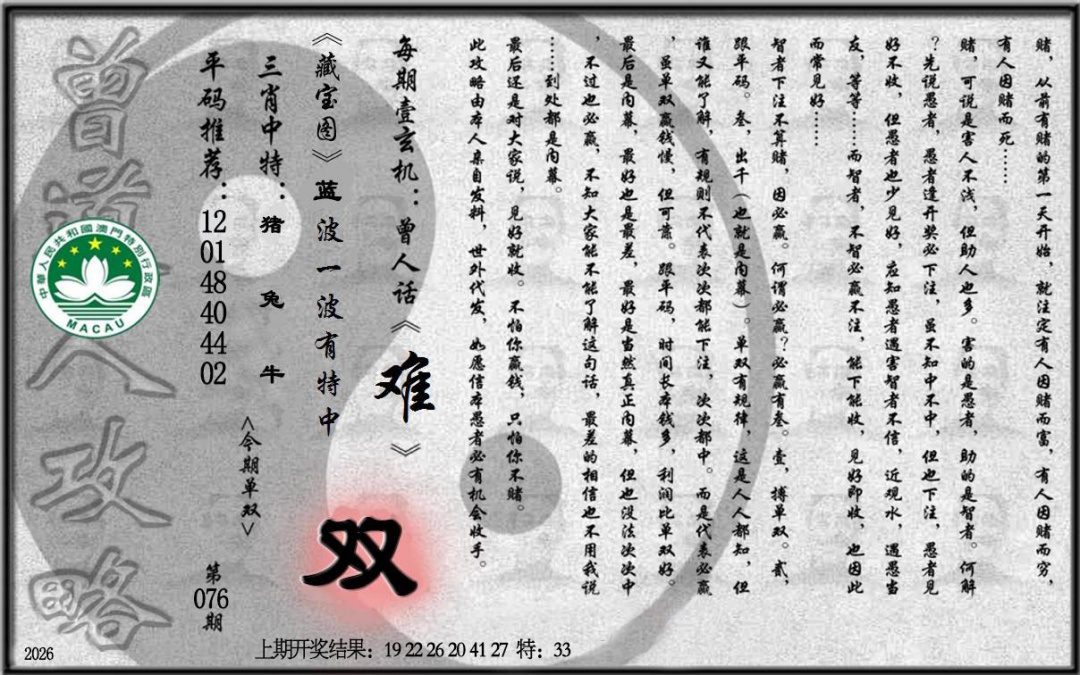 赌，从前有赌的第一天开始，就注定有人因赌而富，有人因赌而穷，
有人因赌而死……
赌，可说是害人不浅，但助人也多。害的是愚者，助的是智者。何解
？先说愚者，愚者逢开奖必下注，虽不知中不中，但也下注，愚者见
好不收，但愚者也少见好，应知愚者遇害智者不信，近观水，遇愚当
友，等等……而智者，不智必赢不注，能下能收，见好即收，也因此
而常见好……
智者下注不算赌，因必赢。何谓必赢？必赢有叁。壹，搏单双。贰，
跟平码。叁，出千（也就是内幕）。单双有规律，这是人人都知，但
谁又能了解，有规则不代表次次都能下注，次次都中。而是代表必赢
，虽单双赢钱慢，但可靠。跟平码，时间长本钱多，利润比单双好。
最后是内幕，最好也是最差，最好是当然真正内幕，但也没法次次中
，不过也必赢，不知大家能不能了解这句话，最差的相信也不用我说
……到处都是内幕。
最后还是对大家说，见好就收。不怕你赢钱，只怕你不赌。
此攻略由本人亲自发料，世外代发，如愿信本愚者必有机会收手。
每期壹玄机：曾人话《难》
《藏宝图》蓝波一波有特中
双
三肖中特：猪兔牛
<今期单双>
平码推荐：12 01 48 40 44 02
第076期
曾道人攻略
中華人民共和國澳門特別行政區
MACAU
2026
上期开奖结果：19 22 26 20 41 27 特：33